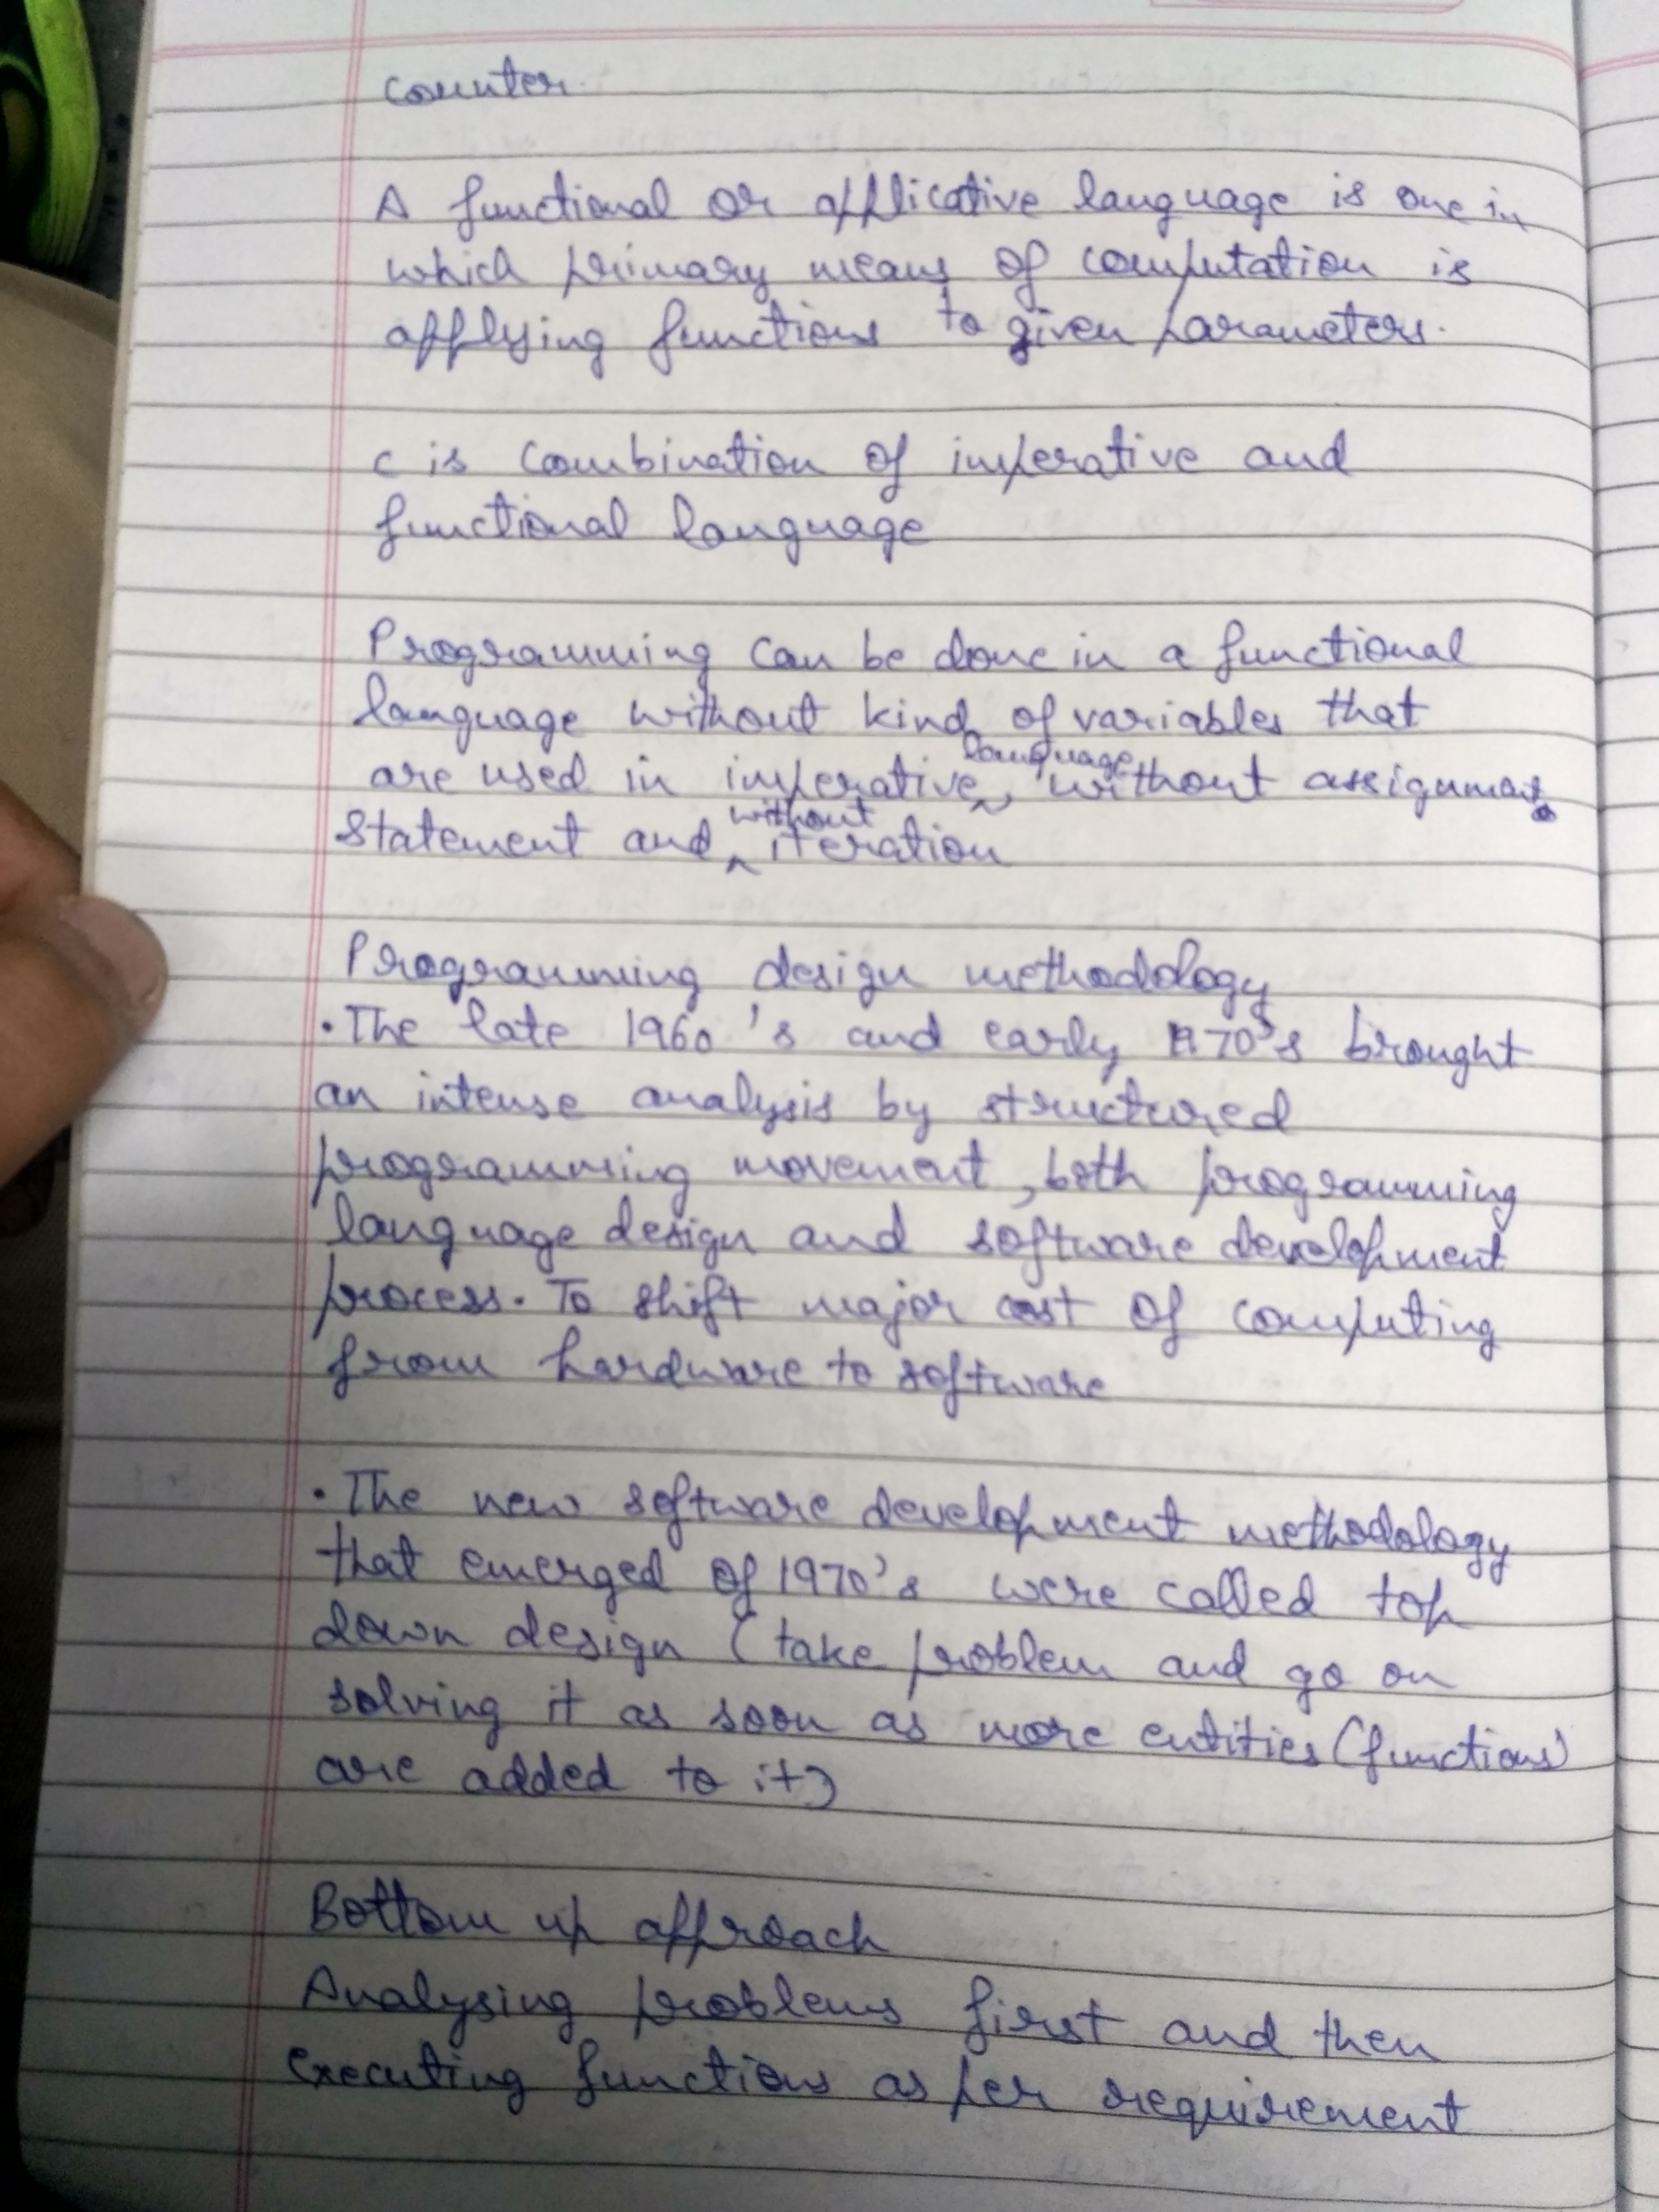 counter.
A functional or applicative language is one in
which primary means of computation is
applying functions to given parameters.
c is combination of imperative and
functional language
Programming can be done in a functional
language without kind of variables that
are used in imperative language, without assignment
statement and without iteration
Programming design methodology
• The late 1960's and early 1970's brought
an intense analysis by structured
programming movement, both programming
language design and software development
process. To shift major cost of computing
from hardware to software
• The new software development methodology
that emerged of 1970's were called top
down design (take problem and go on
solving it as soon as more entities (functions)
are added to it)
Bottom up approach
Analysing problems first and then
executing functions as per requirement